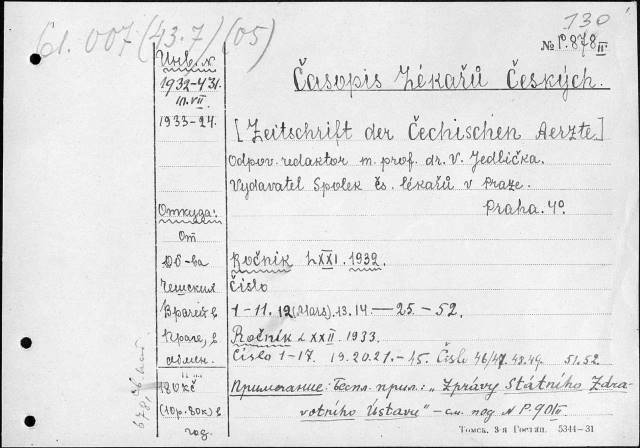 61.007(43.7)(05)
130
№ P.878 II
Инв. №
1932-431.
1933-24.
Časopis Lékařů Českých.
[Zeitschrift der Čechischen Aerzte.]
Odpov. redaktor m. prof. dr. V. Jedlička.
Vydavatel Spolek čs. lékařů v Praze.
Praha. 4º.
Откуда:
От
Об-ва
Чешских
Врачей в
Праге, в
обмен.
180 kč
(10р. 80к) в
год.
Ročník LXXI. 1932.
Číslo
1-11. 12 (Mars). 13. 14 — 25 — 52.
Ročník LXXII. 1933.
Číslo 1-17. 19. 20. 21. - 45. Čísle 46/47. 48. 49. 51. 52.
Примечание: Беспл. прил.: „Zprávy Státního Zdra-
votního Ústavu" - см. под № P. 90 II.
Томск. 3-я Гостип. 5344-31